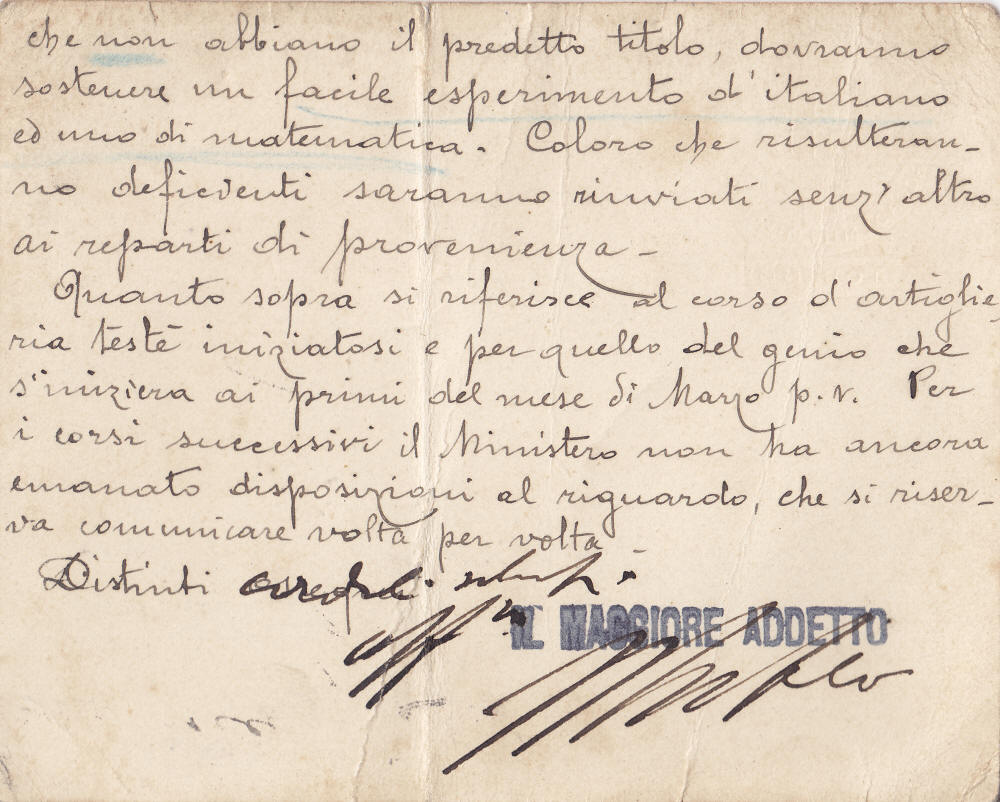 che non abbiano il predetto titolo, dovranno
sostenere un facile esperimento d'italiano
ed uno di matematica. Coloro che risulteran-
no deficienti saranno rinviati senz'altro
ai reparti di provenienza -
Quanto sopra si riferisce al corso d'artiglie-
ria testè iniziatosi e per quello del genio che
s'inizierà ai primi del mese di Marzo p.v. Per
i corsi successivi il Ministero non ha ancora
emanato disposizioni al riguardo, che si riser-
va comunicare volta per volta -
Distinti
IL MAGGIORE ADDETTO